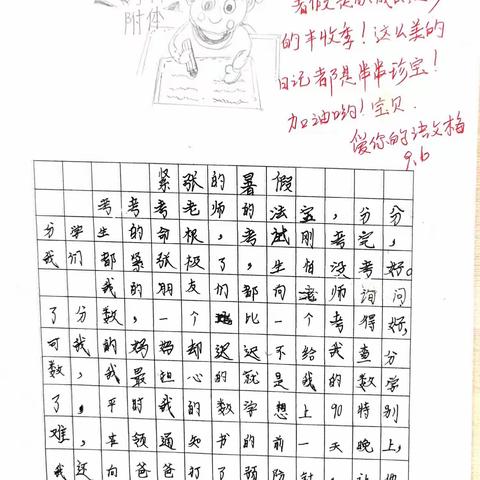 附体
的丰收季！这么美的
日记都是串串珍宝！
加油哟！宝贝.
爱你的语文杨
9.6
紧张的暑假
考考考老师的法宝，分分
分学生的命根，考试刚考完，
我们都紧张极了，生怕没考好。
我的朋友们都向老师询问
了分数，一个比一个考得好，
可我的妈妈却迟迟不给我查分
数，我最担心的就是我的数学
了，平时我的数学想上90特别
难，在领通知书的前一天晚上，
我还向爸爸打了预防针，